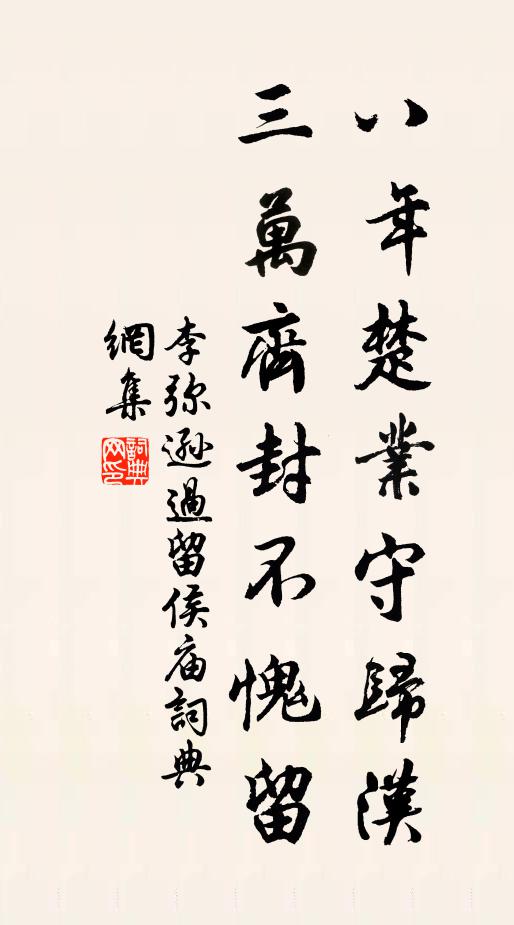 八年楚業守歸漢
三萬齊封不愧留
李弥遜過留侯庙詞典
網集
詞典网印